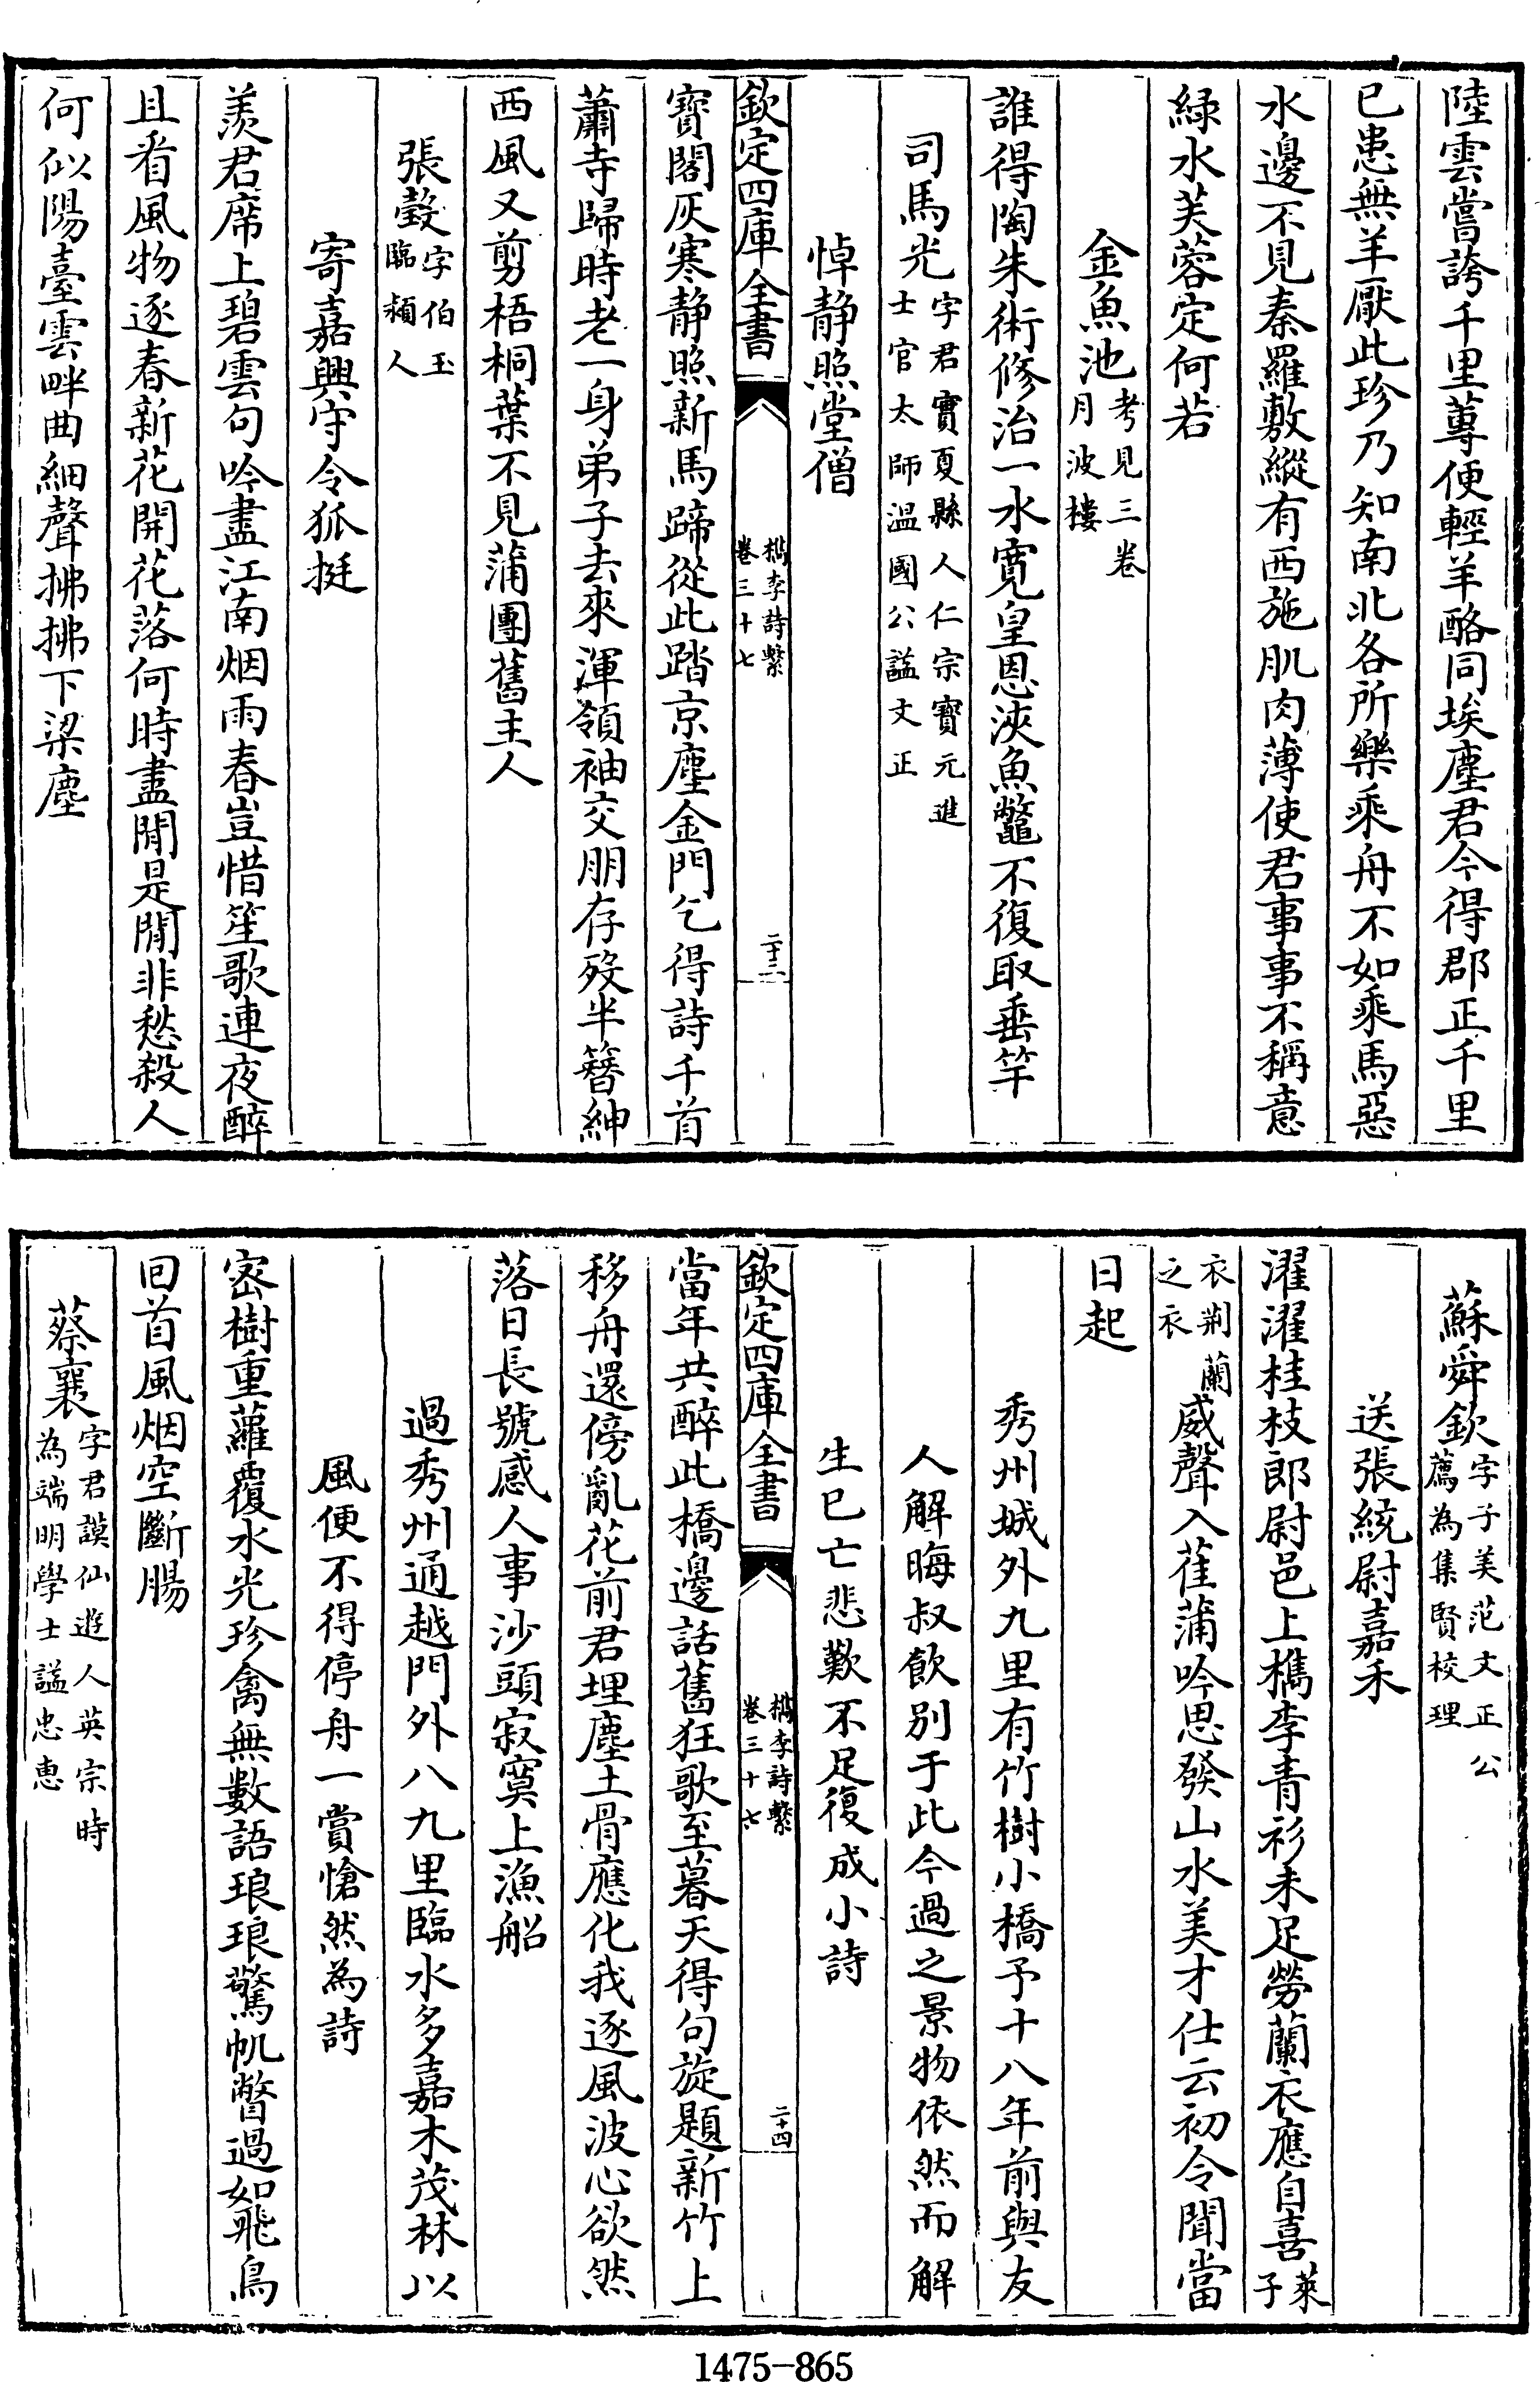 陸雲嘗誇千里蓴便輕羊酪同埃塵君今得郡正千里
已患無羊厭此珍乃知南北各所樂乘舟不如乘馬惡
水邊不見秦羅敷縱有西施肌肉薄使君事事不稱意
緑水芙蓉定何若
金魚池考見三卷
月波樓
誰得陶朱術修治一水寛皇恩浹魚鼈不復取垂竿
司馬光字君實夏縣人仁宗寶元進
士官太師温國公諡文正
悼静照堂僧
欽定四庫全書
檇李詩繫
卷三十七
二十三
寳閣灰寒静照新馬蹄從此踏京塵金門乞得詩千首
蕭寺歸時老一身弟子去來渾領袖交朋存歿半簪紳
西風又剪梧桐葉不見蒲團舊主人
張瑴字伯玉
臨潁人
寄嘉興守令狐挺
羨君席上碧雲句吟盡江南烟雨春豈惜笙歌連夜醉
且看風物逐春新花開花落何時盡閒是閒非愁殺人
何似陽臺雲畔曲細聲拂拂下梁塵
蘇舜欽字子美范文正公
薦為集賢校理
送張統尉嘉禾
濯濯桂枝郎尉邑上檇李青衫未足勞蘭衣應自喜萊
子
衣荆蘭
之衣
威聲入萑蒲吟思發山水美才仕云初令聞當
日起
秀州城外九里有竹樹小橋予十八年前與友
人解晦叔飲别于此今過之景物依然而解
生已亡悲歎不足復成小詩
欽定四庫全書
檇李詩繫
卷三十七
二十四
當年共醉此橋邊話舊狂歌至暮天得句旋題新竹上
移舟還傍亂花前君埋塵土骨應化我逐風波心欲然
落日長號感人事沙頭寂寞上漁船
過秀州通越門外八九里臨水多嘉木茂林以
風便不得停舟一賞愴然為詩
宻樹重蘿覆水光珍禽無數語琅琅驚帆瞥過如飛鳥
回首風烟空斷腸
蔡襄字君謨仙遊人英宗時
為端明學士諡忠惠
1475-865